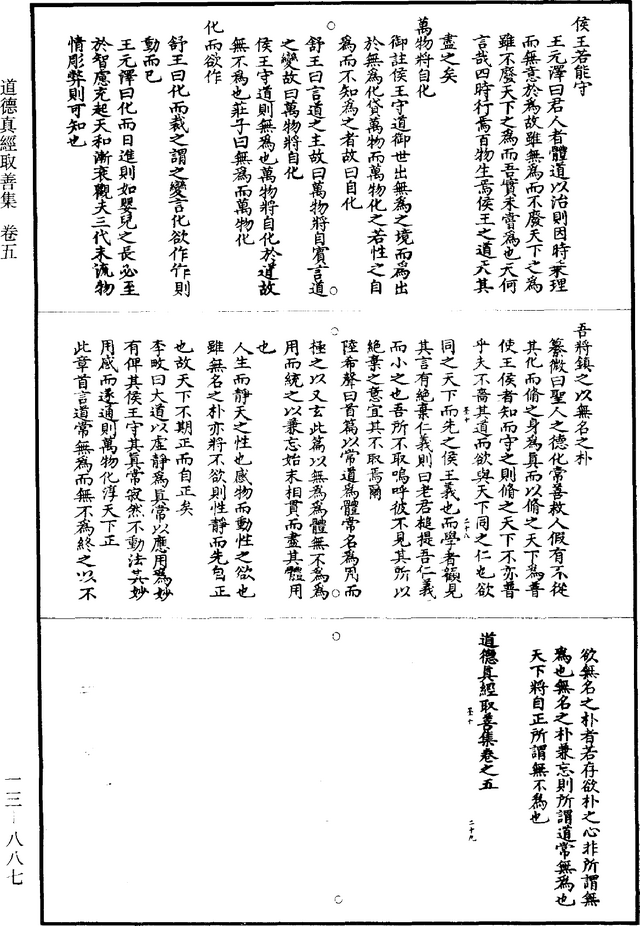 侯王若能守
王元澤曰君人者體道以治則因時乘理
而無意於為故雖無為而不廢天下之為
雖不廢天下之為而吾實未嘗為也天何
言哉四時行焉百物生焉侯王之道天其
盡之矣
萬物將自化
御註侯王守道御世出無為之境而為出
於無為化貸萬物而萬物化之若性之自
為而不知為之者故曰自化
舒王曰言道之主故曰萬物將自賓言道
之變故曰萬物將自化
侯王守道則無為也萬物將自化於道故
無不為也莊子曰無為而萬物化
化而欲作
舒王曰化而裁之謂之變言化欲作作則
動而已
王元澤曰化而日進則如嬰兒之長必至
於智慮充起天和漸衰觀夫三代末流物
情彫弊則可知也
吾將鎮之以無名之朴
纂微曰聖人之德化常善救人假有不從
其化而脩之身為真而以脩之天下為普
使王侯者知而守之則脩之天下不亦普
乎夫不嗇其道而欲與天下同之仁也欲
同之天下而先之侯王義也而學者顧見
其言有絕棄仁義則曰老君槌提吾仁義
而小之也吾所不取嗚呼彼不見其所以
絕棄之意宜其不取焉爾
陸希聲曰首篇以常道為體常名為用而
極之以又玄此篇以無為為體無不為為
用而統之以兼忘始末相貫而盡其體用
也
人生而靜天之性也感物而動性之欲也
雖無名之朴亦將不欲則性靜而先自正
也故天下不期正而自正矣
李畋曰大道以虛靜為真常以應用為妙
有俾其侯王守其真常寂然不動法其妙
用感而遂通則萬物化淳天下正
此章首言道常無為而無不為終之以不
欲無名之朴者若存欲朴之心非所謂無
為也無名之朴兼忘則所謂道常無為也
天下將自正所謂無不為也
道德真經取善集卷之五
道德真經取善集 卷五
一三—八八七